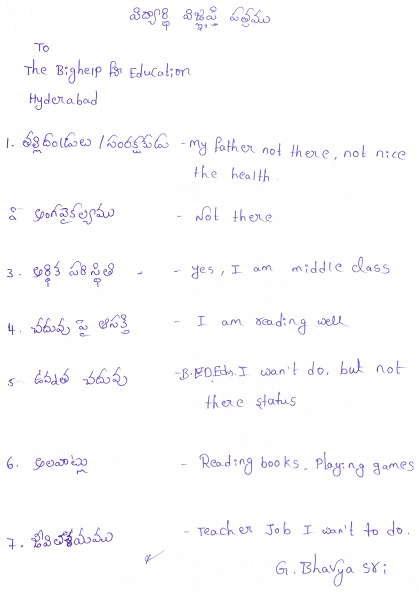 విద్యార్థి విజ్ఞప్తి పత్రము
To
The Bighelp for Education
Hyderabad
1. తల్లిదండ్రులు / సంరక్షకుడు - my father not there, not nice
the health.
2 అంగవైకల్యాము - Not there
3. ఆర్థిక పరిస్థితి - yes, I am middle class
4. చదువు పై ఆసక్తి - I am reading well
5 ఉన్నత చదువు - I wan't do, but not
there status
6. అలవాట్లు - Reading books, Playing games
7. - Teacher Job I wan't to do.
G. Bhavya sri